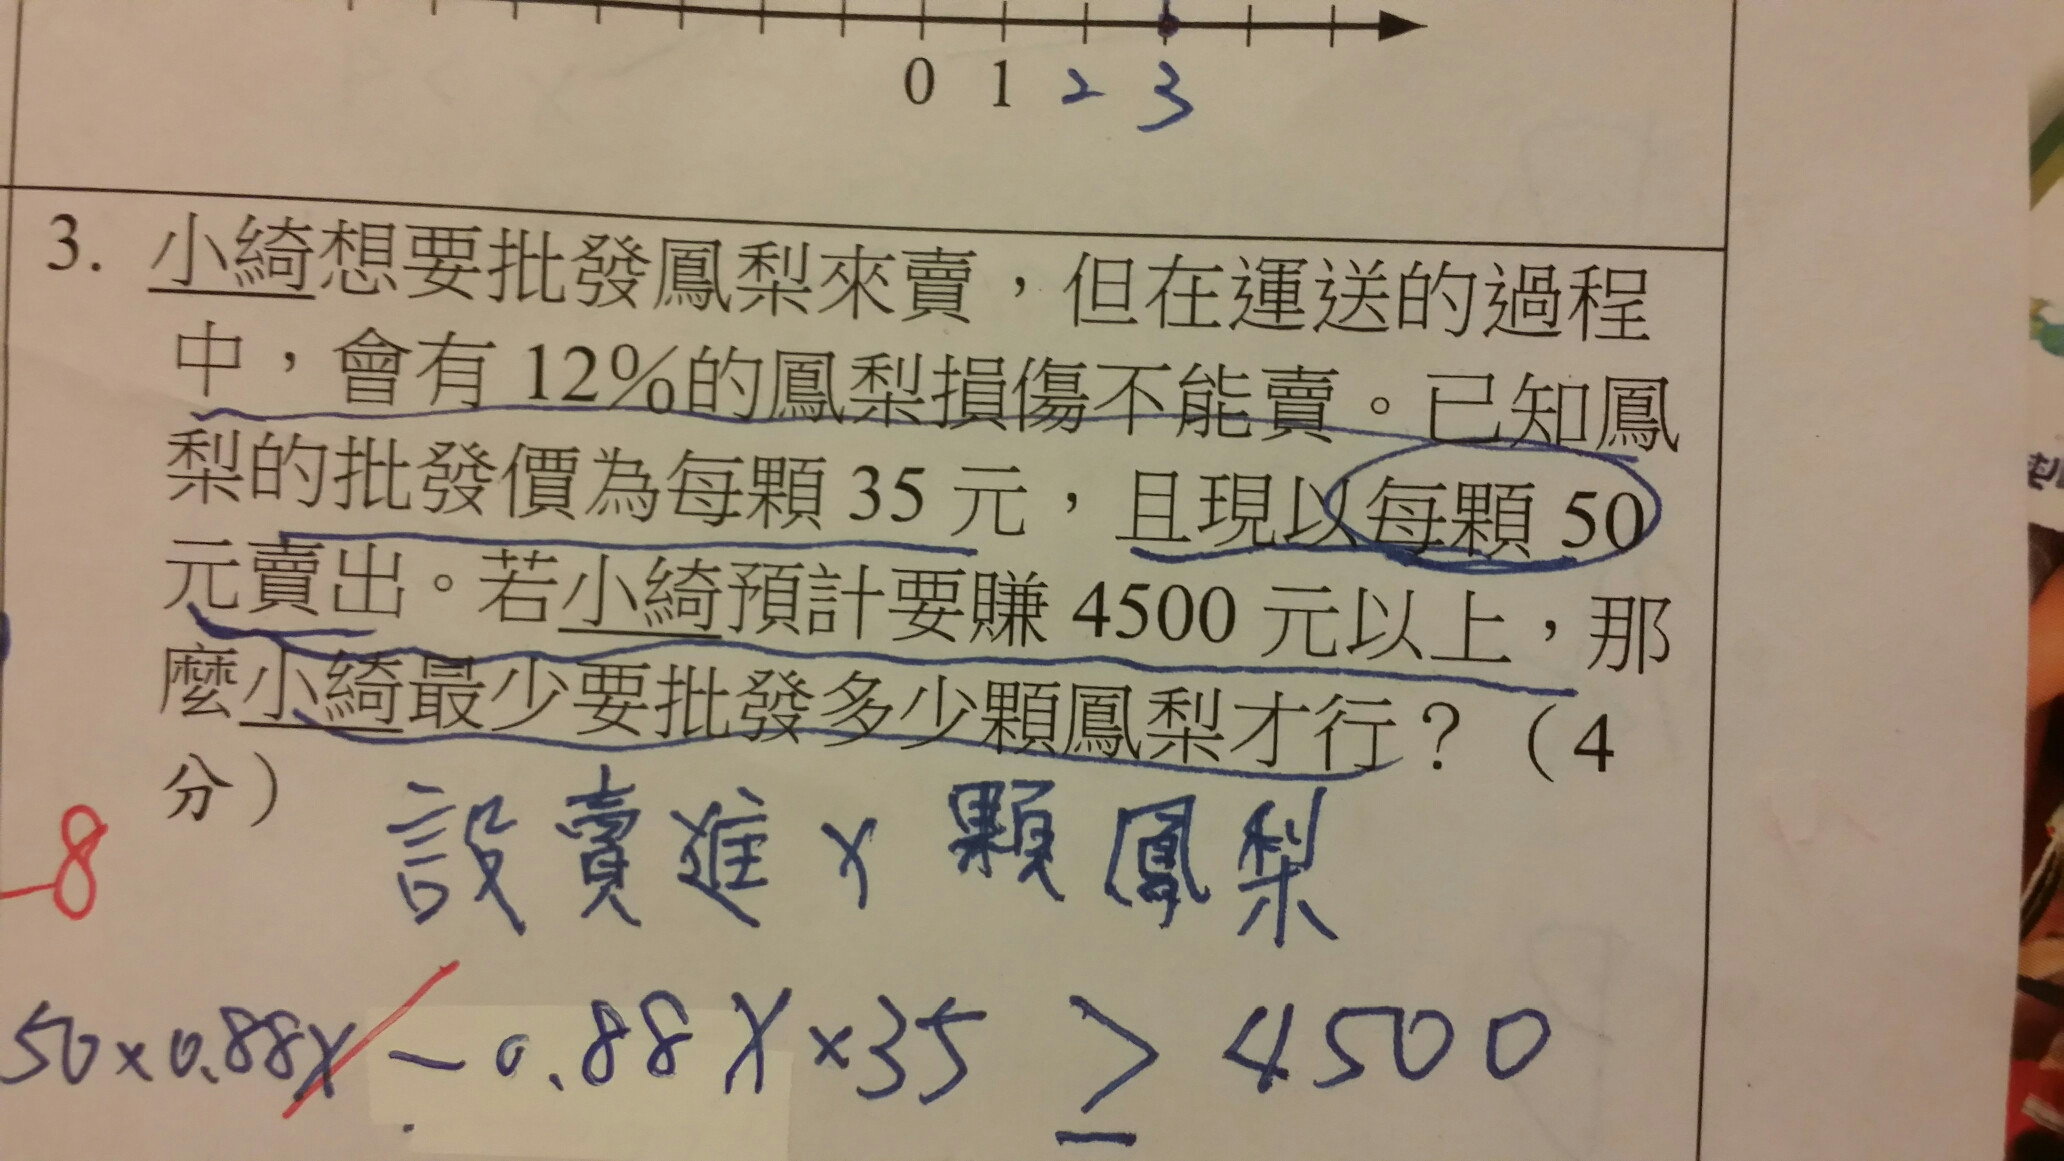 0 1 2 3
3. 小綺想要批發鳳梨來賣，但在運送的過程
中，會有 12%的鳳梨損傷不能賣。已知鳳
梨的批發價為每顆 35 元，且現以每顆 50
元賣出。若小綺預計要賺 4500 元以上，那
麼小綺最少要批發多少顆鳳梨才行？（4
分）
設賣進 x 顆鳳梨
-8
50×0.88x - 0.88x×35 ≥ 4500